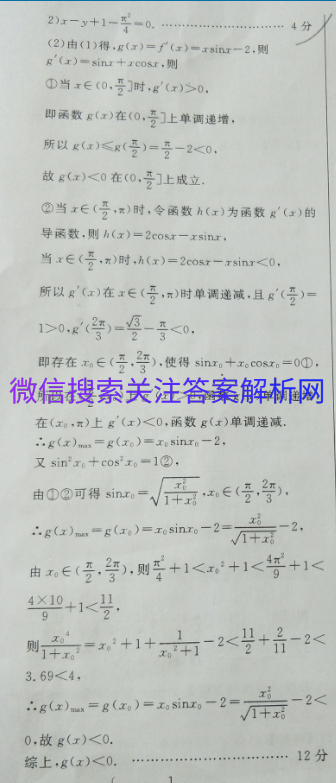 2)x-y+1-π²/4=0. …………………… 4分
(2)由(1)得,g(x)=f′(x)=xsinx-2,则
g′(x)=sinx+xcosx,则
①当x∈(0,π/2]时,g′(x)>0,
即函数g(x)在(0,π/2]上单调递增,
所以g(x)≤g(π/2)=π/2-2<0,
故g(x)<0在(0,π/2]上成立.
②当x∈(π/2,π)时,令函数h(x)为函数g′(x)的
导函数,则h(x)=2cosx-xsinx,
当x∈(π/2,π)时,h(x)=2cosx-xsinx<0,
所以g′(x)在x∈(π/2,π)时单调递减,且g′(π/2)=
1>0,g′(2π/3)=√3/2-π/3<0,
即存在x₀∈(π/2,2π/3),使得sinx₀+x₀cosx₀=0①,
微信搜索关注答案解析网
在(x₀,π)上g′(x)<0,函数g(x)单调递减.
∴g(x)max=g(x₀)=x₀sinx₀-2,
又sin²x₀+cos²x₀=1②,
由①②可得sinx₀=√(x₀²/(1+x₀²)),x₀∈(π/2,2π/3),
∴g(x)max=g(x₀)=x₀sinx₀-2=x₀²/√(1+x₀²)-2,
由x₀∈(π/2,2π/3),则π²/4+1<x₀²+1<4π²/9+1<
4×10/9+1<11/2,
则x₀⁴/(1+x₀²)=x₀²+1+1/(x₀²+1)-2<11/2+2/11-2<
3.69<4,
∴g(x)max=g(x₀)=x₀sinx₀-2=x₀²/√(1+x₀²)-2<
0,故g(x)<0.
综上,g(x)<0. …………………… 12分